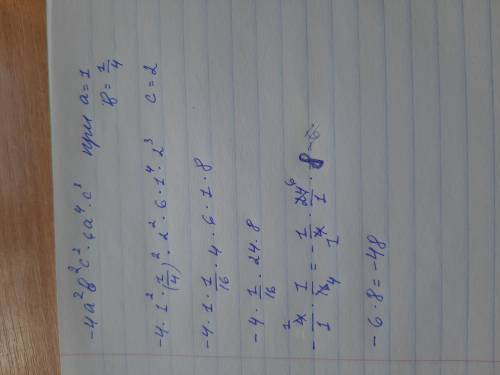 -4a²b²c²·6a⁴·c³ при a=1
b=1/4
-4·1²·(1/4)²·2²·6·1⁴·2³ c=2
-4·1·1/16·4·6·1·8
-4·1/16·24·8
-4/1·1/16=-1/4·24/1·8=
-6·8=-48